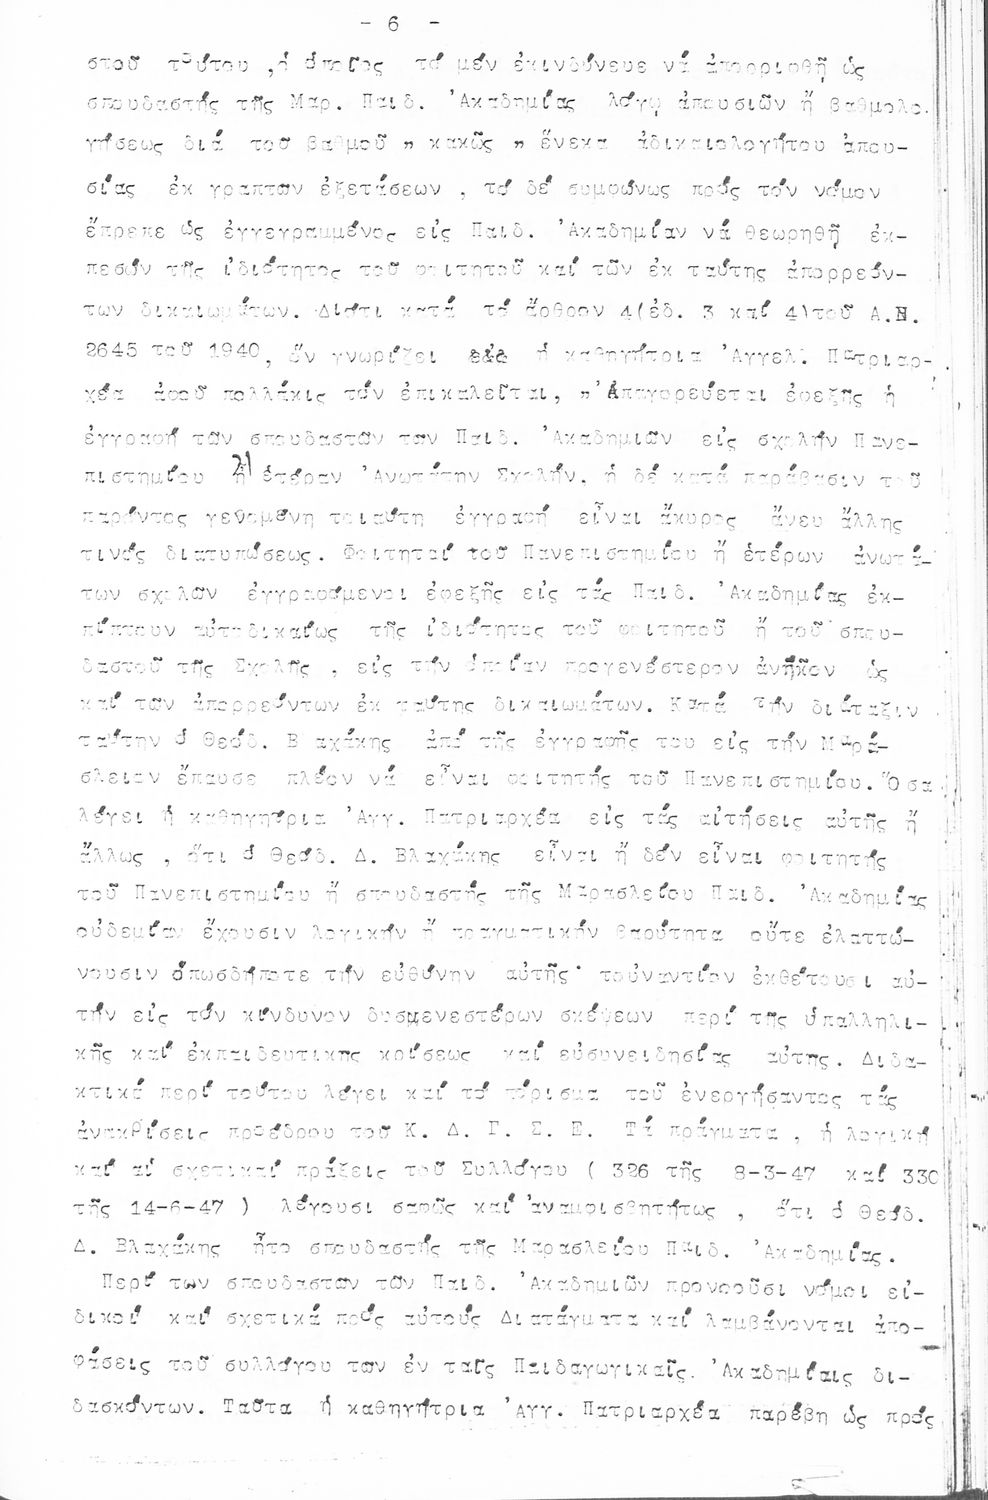 - 6 -
στοῦ τούτου ,ὁ ὁποῖος τό μέν ἐκινδύνευε νά ἀπορριφθῇ ὡς
σπουδαστής τῆς Μαρ. Παιδ. Ἀκαδημίας λόγῳ ἀπουσιῶν ἤ βαθμολο-
γήσεως διά τοῦ βαθμοῦ " κακῶς " ἕνεκα ἀδικαιολογήτου ἀπου-
σίας ἐκ γραπτῶν ἐξετάσεων , τό δέ συμφώνως πρός τόν νόμον
ἔπρεπε ὡς ἐγγεγραμμένος εἰς Παιδ. Ἀκαδημίαν νά θεωρηθῇ ἐκ-
πεσών τῆς ἰδιότητος τοῦ φοιτητοῦ καί τῶν ἐκ ταύτης ἀπορρεόν-
των δικαιωμάτων. Διότι κατά τό ἄρθρον 4(ἐδ. 3 καί 4)τοῦ Α.Ν.
2645 τοῦ 1940, ὅν γνωρίζει ἡ καθηγήτρια Ἀγγελ. Πατριαρ-
χέα ἀφοῦ πολλάκις τόν ἐπικαλεῖται, "Ἀπαγορεύεται ἐφεξῆς ἡ
ἐγγραφή τῶν σπουδαστῶν των Παιδ. Ἀκαδημιῶν εἰς σχολήν Πανε-
πιστημίου ἤ ἑτέραν Ἀνωτάτην Σχολήν, ἡ δέ κατά παράβασιν τοῦ
παρόντος γενομένη τοιαύτη ἐγγραφή εἶναι ἄκυρος ἄνευ ἄλλης
τινός διατυπώσεως. Φοιτηταί τοῦ Πανεπιστημίου ἤ ἑτέρων ἀνωτά-
των σχολῶν ἐγγραφόμενοι ἐφεξῆς εἰς τάς Παιδ. Ἀκαδημίας ἐκ-
πίπτουν αὐτοδικαίως τῆς ἰδιότητος τοῦ φοιτητοῦ ἤ τοῦ σπου-
δαστοῦ τῆς Σχολῆς , εἰς τήν ὁποίαν προγενέστερον ἀνῆκον ὡς
καί τῶν ἀπορρεόντων ἐκ ταύτης δικαιωμάτων. Κατά τήν διάταξιν
ταύτην ὁ Θεόδ. Β αχάκης ἀπό τῆς ἐγγραφῆς του εἰς τήν Μαρά-
σλειαν ἔπαυσε πλέον νά εἶναι φοιτητής τοῦ Πανεπιστημίου. Ὅσα
λέγει ἡ καθηγήτρια Ἀγγ. Πατριαρχέα εἰς τάς αἰτήσεις αὐτῆς ἤ
ἄλλως , ὅτι ὁ Θεόδ. Δ. Βλαχάκης εἶναι ἤ δέν εἶναι φοιτητής
τοῦ Πανεπιστημίου ἤ σπουδαστής τῆς Μαρασλείου Παιδ. Ἀκαδημίας
οὐδεμίαν ἔχουσιν λογικήν ἤ πραγματικήν βαρύτητα οὔτε ἐλαττώ-
νουσιν ὁπωσδήποτε τήν εὐθύνην αὐτῆς· τοὐναντίον ἐκθέτουσι αὐ-
τήν εἰς τόν κίνδυνον δυσμενεστέρων σκέψεων περί τῆς ὑπαλληλι-
κῆς καί ἐκπαιδευτικης κρίσεως καί εὐσυνειδησίας αὐτης. Διδα-
κτικά περί τούτου λέγει καί τό πόρισμα τοῦ ἐνεργήσαντος τάς
ἀνακρίσεις προέδρου τοῦ Κ. Δ. Γ. Σ. Ε. Τά πράγματα , ἡ λογική
καί αἱ σχετικαί πράξεις τοῦ Συλλόγου ( 326 τῆς 8-3-47 καί 330
τῆς 14-6-47 ) λέγουσι σαφῶς καί ἀναμφισβητήτως , ὅτι ὁ Θεόδ.
Δ. Βλαχάκης ἦτο σπουδαστής τῆς Μαρασλείου Παιδ. Ἀκαδημίας.
Περί των σπουδαστων τῶν Παιδ. Ἀκαδημιῶν προνοοῦσι νόμοι εἰ-
δικοί καί σχετικά πρός αὐτούς Διατάγματα καί λαμβάνονται ἀπο-
φάσεις τοῦ συλλόγου των ἐν ταῖς Παιδαγωγικαῖς. Ἀκαδημίαις δι-
δασκόντων. Ταῦτα ἡ καθηγήτρια Ἀγγ. Πατριαρχέα παρέβη ὡς πρός